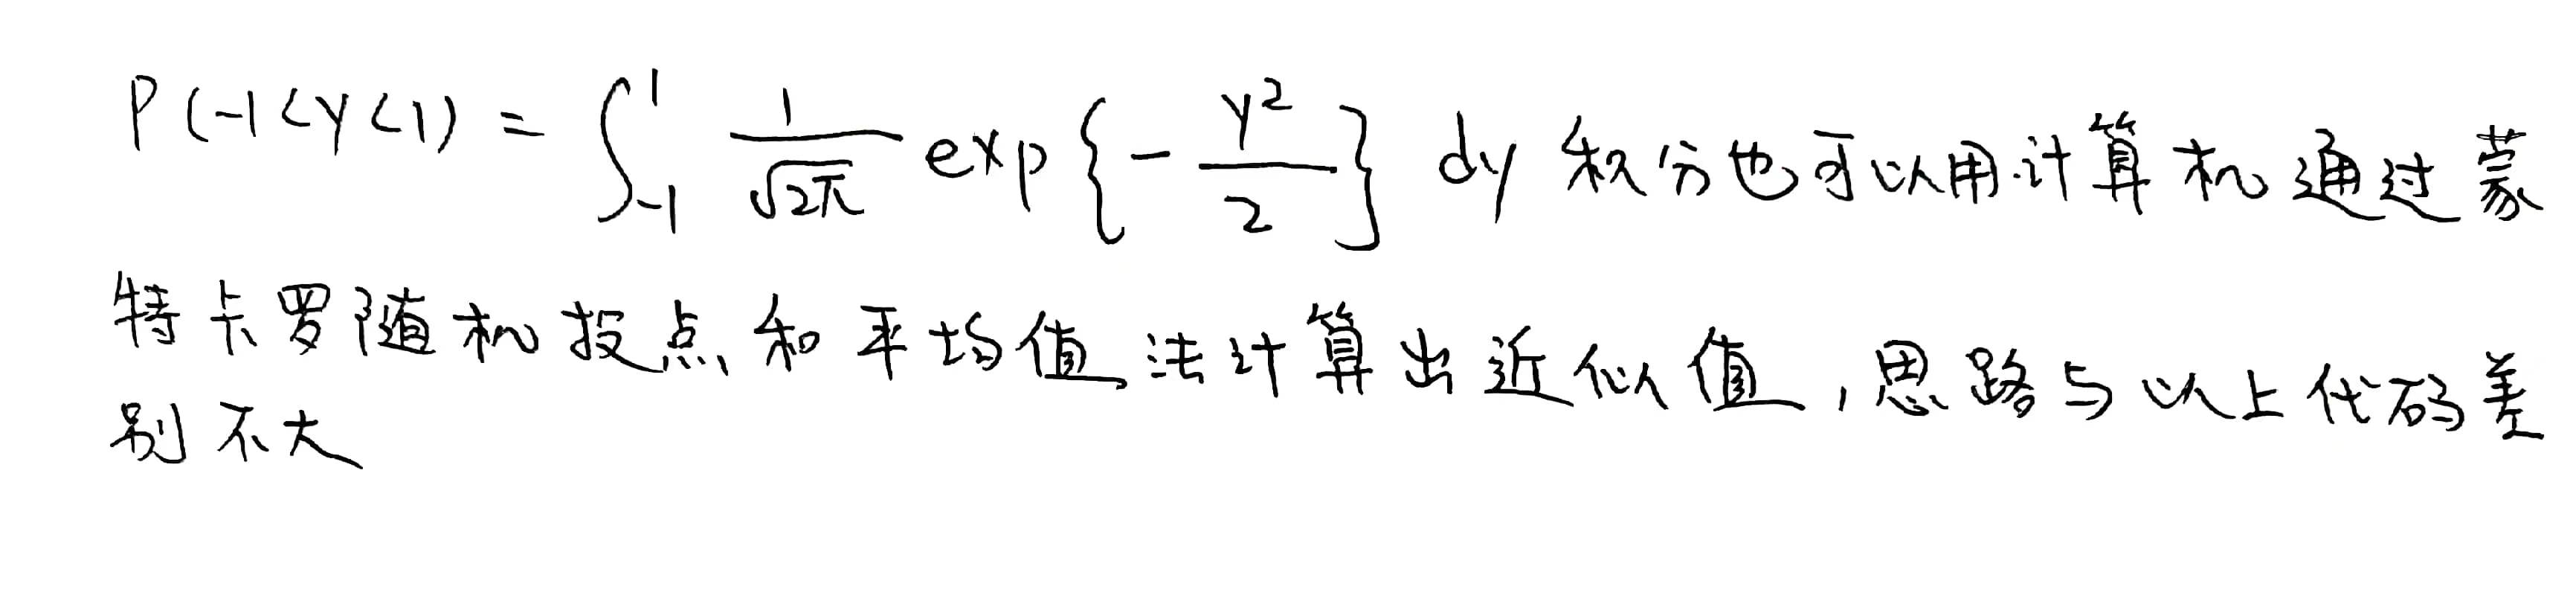 P(-1<y<1) = ∫_{-1}^{1} \frac{1}{\sqrt{2π}} exp{-\frac{y^2}{2}} dy 积分也可以用计算机通过蒙
特卡罗随机投点和平均值法计算出近似值,思路与以上代码差
别不大